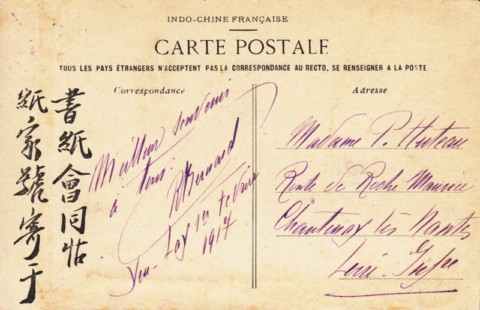 INDO-CHINE FRANÇAISE
CARTE POSTALE
TOUS LES PAYS ÉTRANGERS N'ACCEPTENT PAS LA CORRESPONDANCE AU RECTO, SE RENSEIGNER A LA POSTE
Correspondance
書紙會同帖
紙家號寄于
Meilleur souvenir
à tous
1er
1917
Adresse
Madame P.
Route de Roche Maurice
Chantenay lès Nantes
Loire Infre